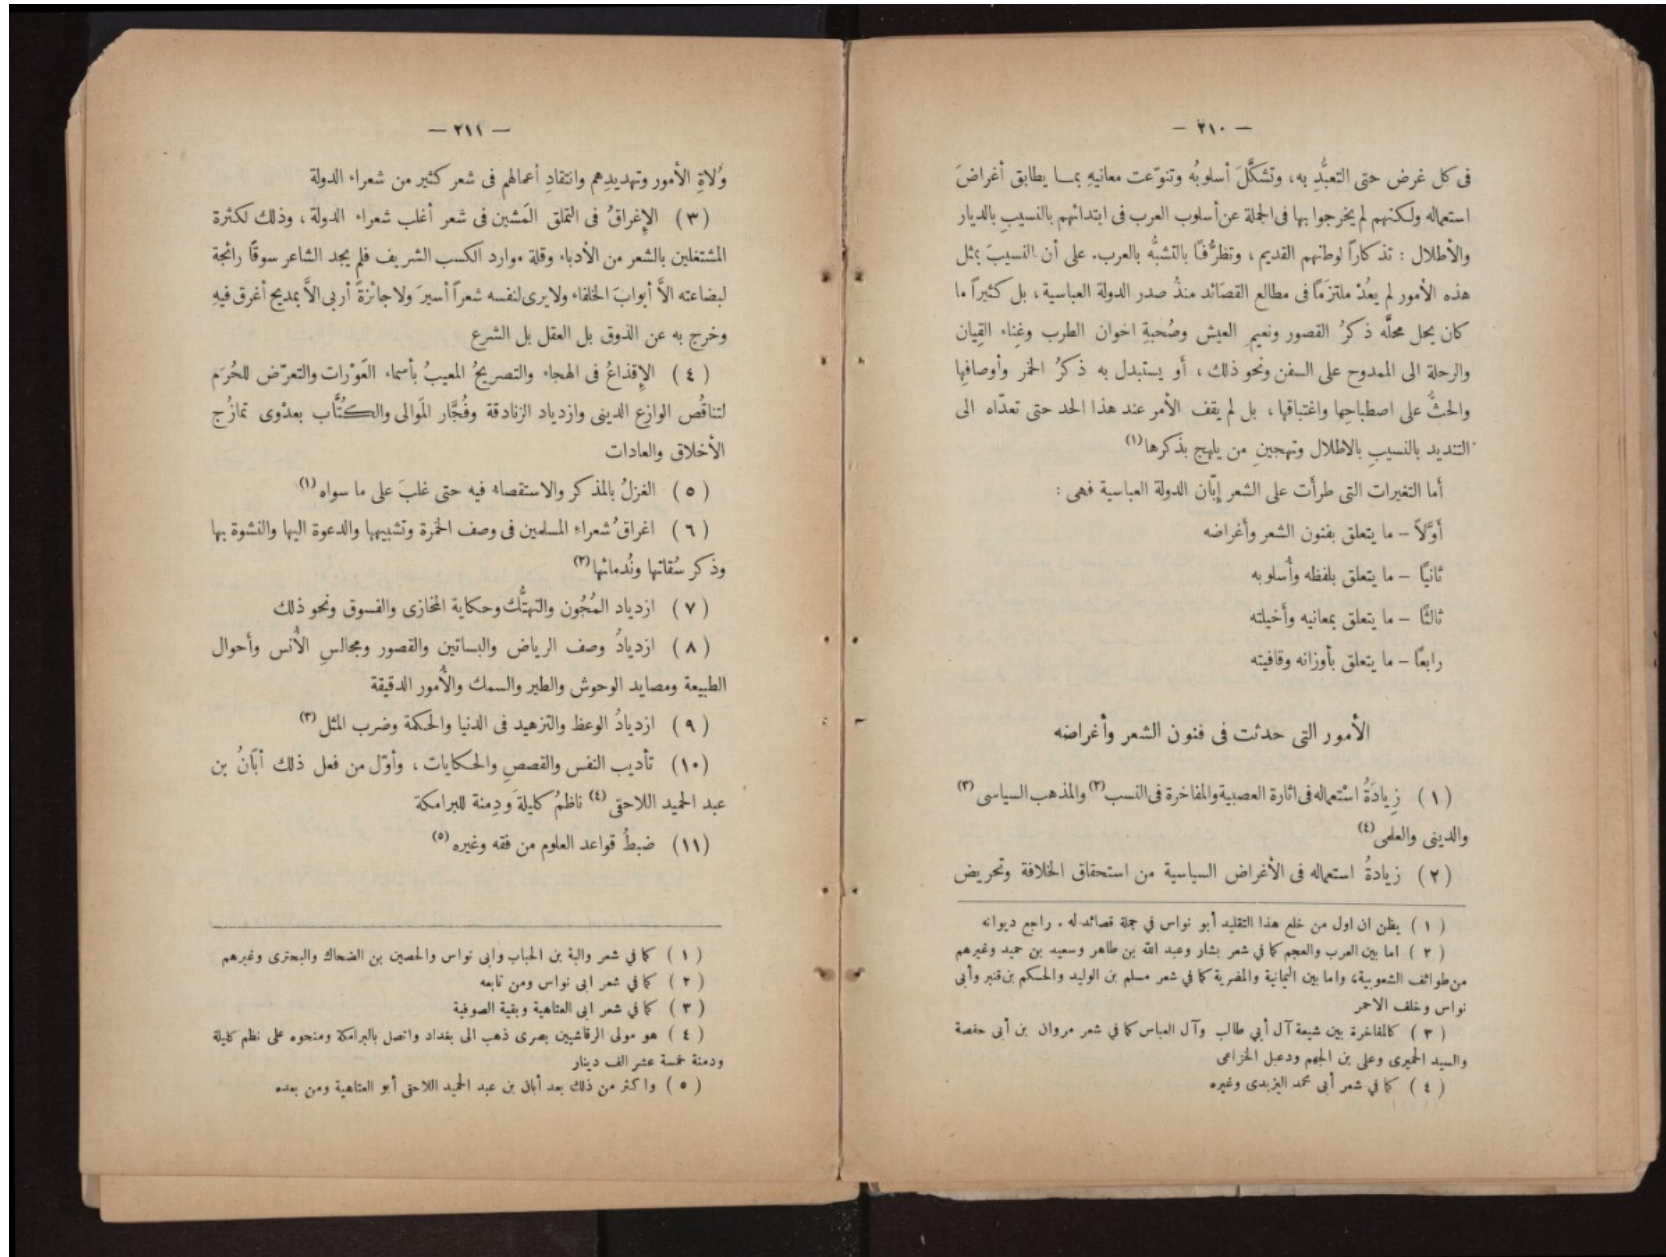 — ٢١٠ —
فى كل غرض حتى التعبُّدِ به، وتشكَّلَ أسلوبُه وتنوّعت معانيهِ بمـا يطابق أغراضَ
استعماله ولكنهم لم يخرجوا بها فى الجملة عن أسلوب العرب فى ابتدائهم بالنسيبِ بالديار
والأطلال : تذكاراً لوطنهم القديم ، وتظرُّفًا بالتشبُّه بالعرب. على أن النسيبَ بمثل
هذه الأمور لم يعُدْ ملتزمًا فى مطالع القصَائد منذُ صدر الدولة العباسية ، بل كثيراً ما
كان يحل محلَّه ذكرُ القصور ونعيمِ العيش وصُحبةِ اخوان الطرب وغِناء القِيان
والرحلةِ الى الممدوح على السفن ونحو ذلك ، أو يستبدل به ذكرُ الخمر وأوصافِها
والحثُّ على اصطباحِها واغتباقها ، بل لم يقف الأمر عند هذا الحد حتى تعدّاه الى
التنديد بالنسيبِ بالاطلال وتهجينِ من يلهج بذكرها (١)
أما التغيرات التى طرأت على الشعر إبّان الدولة العباسية فهى :
أوّلاً – ما يتعلق بفنون الشعر وأغراضه
ثانيًا – ما يتعلق بلفظه وأسلوبه
ثالثًا – ما يتعلق بمعانيه وأخيلته
رابعًا – ما يتعلق بأوزانه وقافيته
الأمور التى حدثت فى فنون الشعر وأغراضه
( ١ ) زِيادَةُ اسْتعماله فى اثارة العصبية والمفاخرة فى النسب (٢) والمذهب السياسى (٣)
والدينى والعلمى (٤)
( ٢ ) زيادةُ استعماله فى الأغراض السياسية من استحقاق الخلافة وتحريض
( ١ ) يظن ان اول من خلع هذا التقليد أبو نواس في جملة قصائد له . راجع ديوانه
( ٢ ) اما بين العرب والعجم كما في شعر بشار وعبد الله بن طاهر وسعيد بن حميد وغيرهم
من طوائف الشعوبية، واما بين اليمانية والمضرية كما في شعر مسلم بن الوليد والحكم بن قنبر وأبى
نواس وخلف الاحمر
( ٣ ) كالمفاخرة بين شيعة آل أبي طالب وآل العباس كما في شعر مروان بن أبى حفصة
والسيد الحميرى وعلى بن الجهم ودعبل الخزاعى
( ٤ ) كما في شعر أبى محمد اليزيدى وغيره
— ٢١١ —
وُلاةِ الأمور وتهديدِهم وانتقادِ أعمالهم فى شعر كثير من شعراء الدولة
( ٣ ) الإغراقُ فى التملق المَشين فى شعر أغلب شعراء الدولة ، وذلك لكثرة
المشتغلين بالشعر من الأدباء وقلة موارد الكسب الشريف فلم يجد الشاعر سوقًا رائجة
لبضاعته الاَّ أبوابَ الخلفاء ولا يرى لنفسه شعراً أسيرَ ولا جائزةً أربى الاَّ بمديح أغرق فيهِ
وخرج به عن الذوق بل العقل بل الشرع
( ٤ ) الإقذاعُ فى الهجاء والتصريحُ المعيبُ بأسماء العَوْرات والتعرّض للحُرَم
لتناقُص الوازِع الدينى وازدياد الزنادقة وفُجَّار المَوالى والكُتَّاب بعدْوى تمازُج
الأخلاق والعادات
( ٥ ) الغزلُ بالمذكر والاستقصاء فيه حتى غلبَ على ما سواه (١)
( ٦ ) اغراقُ شعراءِ المسلمين فى وصف الخمرة وتشبيهها والدعوة اليها والنشوة بها
وذكر سُقاتها ونُدمائها (٢)
( ٧ ) ازدياد المُجُون والتهتُّك وحكاية المخازى والفسوق ونحو ذلك
( ٨ ) ازديادُ وصف الرياض والبساتين والقصور ومجالسِ الأُنس وأحوال
الطبيعة ومصايد الوحوش والطير والسمك والأُمور الدقيقة
( ٩ ) ازديادُ الوعظ والتزهيد فى الدنيا والحكمة وضرب المثل (٣)
(١٠) تأديب النفس والقصصِ والحكايات ، وأوّل من فعل ذلك أبَانُ بن
عبد الحميد اللاحقى (٤) ناظمُ كليلةَ ودِمنة للبرامكة
(١١) ضبطُ قواعد العلوم من فقه وغيره (٥)
( ١ ) كما في شعر والبة بن الحباب وابى نواس والحصين بن الضحاك والبحترى وغيرهم
( ٢ ) كما في شعر ابى نواس ومن تابعه
( ٣ ) كما في شعر ابى العتاهية وبقية الصوفية
( ٤ ) هو مولى الرقاشيين بصرى ذهب الى بغداد واتصل بالبرامكة ومنحوه على نظم كليلة
ودمنة خمسة عشر الف دينار
( ٥ ) واكثر من ذلك بعد أبان بن عبد الحميد اللاحقى أبو العتاهية ومن بعده